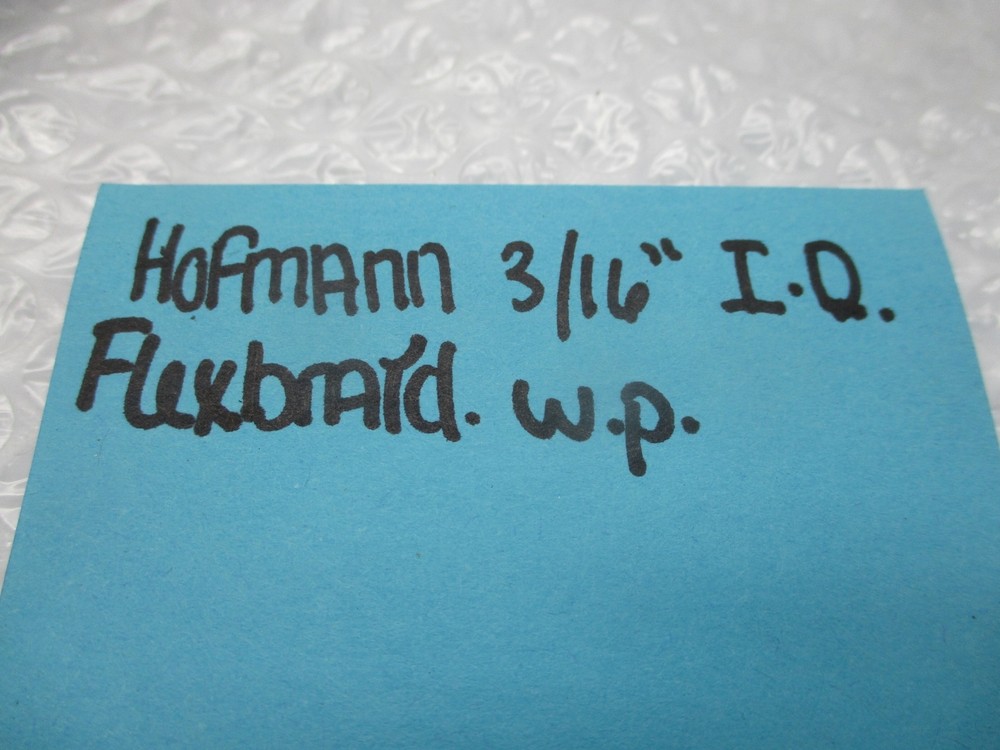 Hofmann 3/16" I.D.
Flexbraid. w.p.